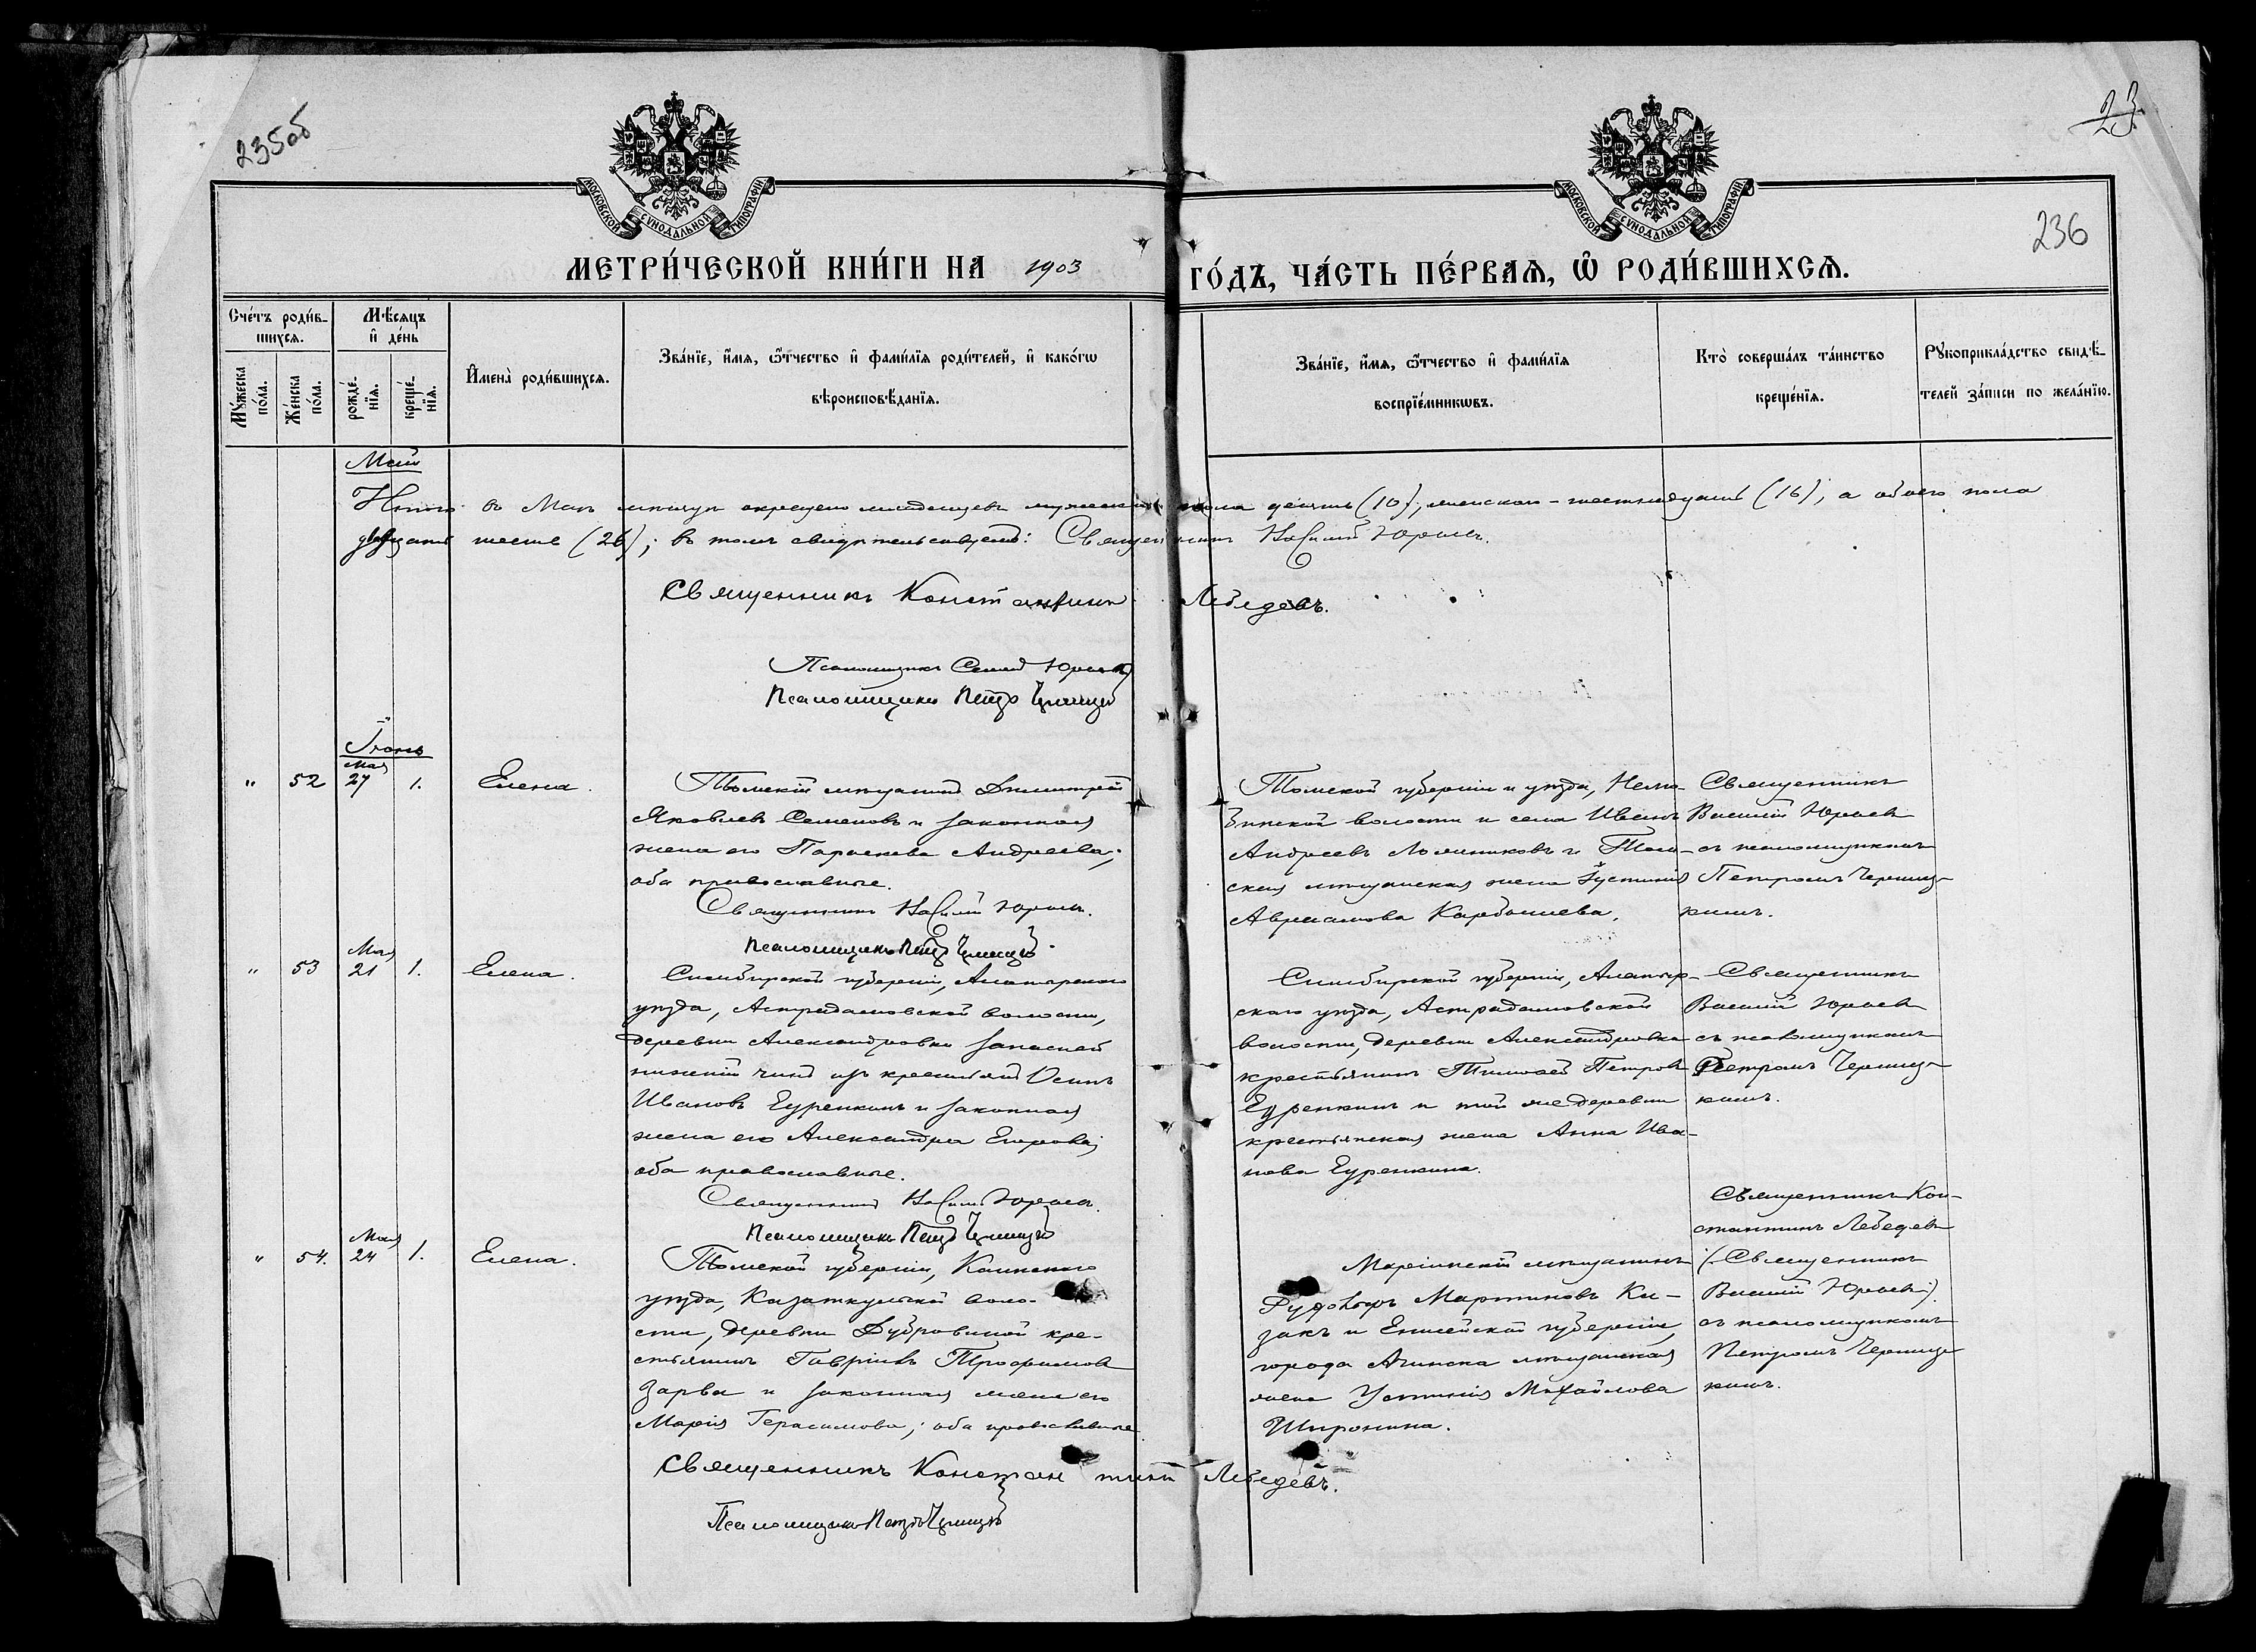 235об
23
236
МОСКОВСКОЙ СѴНОДАЛЬНОЙ ТИПОГРАФІИ
МОСКОВСКОЙ СѴНОДАЛЬНОЙ ТИПОГРАФІИ
МЕТРИ́ЧЕСКОЙ КНИ́ГИ НА 1903 ГО́ДЪ, ЧА́СТЬ ПЕ́РВАѦ, Ѿ РОДИ́ВШИХСѦ.
Сче́тъ роди́вшихсѧ.
Мꙋ́жеска по́ла.
Же́нска по́ла.
Мѣ́сѧцъ и҆ де́нь
рожде́нїѧ.
креще́нїѧ.
И҆мена̀ роди́вшихсѧ.
Зва́нїе, и҆́мѧ, ѻ҆́тчество и҆ фами́лїѧ роди́телей, и҆ како́гѡ
вѣроисповѣ́данїѧ.
Зва́нїе, и҆́мѧ, ѻ҆́тчество и҆ фами́лїѧ
воспрїе́мникѡвъ.
Кто̀ соверша́лъ та́инство
креще́нїѧ.
Рꙋкоприкла́дство свидѣ́-
телей за́писи по жела́нїю.
Май
Итого въ Маѣ мѣсяцѣ окрещено младенцевъ мужескаго пола десять (10), женскаго – шестнадцать (16), а обоего пола
двадцать шесть (26); въ томъ свидѣтельствуемъ: Священникъ Василій Юрьевъ.
Священникъ Константинъ Лебедевъ.
Псаломщикъ Юрьевъ
Псаломщикъ Петръ
Іюнь
" 52 Мая 27 1. Елена.
Томскій мѣщанинъ Димитрій
Яковлевъ Семеновъ и законная
жена его Параскева Андреева;
оба православные.
Священникъ Василій Юрьевъ.
Псаломщикъ Петръ
Томской губерніи и уѣзда, Нелю-
бинской волости и села Иванъ
Андреевъ и Том-
ская мѣщанская жена Іустинія
Авраамова Карбышева.
Священникъ
Василій Юрьевъ
съ псаломщикомъ
Петромъ
кимъ.
" 53 Мая 21 1. Елена.
Симбирской губерніи, Алатырскаго
уѣзда, Астрадамовской волости,
деревни Александровки запасной
нижній чинъ изъ крестьянъ Осипъ
Ивановъ Еуренкинъ и законная
жена его Александра Егорова;
оба православные.
Священникъ Василій Юрьевъ.
Псаломщикъ Петръ
Симбирской губерніи, Алатыр-
скаго уѣзда, Астрадамовской
волости, деревни Александровки
крестьянинъ Тимофей Петровъ
Еуренкинъ и той же деревни
крестьянская жена Анна Ива-
нова Еуренкина.
Священникъ
Василій Юрьевъ
съ псаломщикомъ
Петромъ
кимъ.
" 54. Мая 24 1. Елена.
Томской губерніи, Каинскаго
уѣзда, Казаткульской воло-
сти, деревни Дубровиной кре-
стьянинъ Гавріилъ Трофимовъ
Зарва и законная жена его
Марія Герасимова; оба православные.
Священникъ Константинъ Лебедевъ.
Псаломщикъ Петръ
Маріинскій мѣщанинъ
Рудольфъ Мартиновъ Ка-
закъ и Енисейской губерніи,
города Ачинска мѣщанская
жена Устинія Михайлова
Широнина.
Священникъ Кон-
стантинъ Лебедевъ
(Священникъ
Василій Юрьевъ).
съ псаломщикомъ
Петромъ
кимъ.